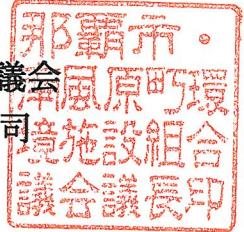 議会
司
那覇市・
南風原町環
境施設組合
議会議長印